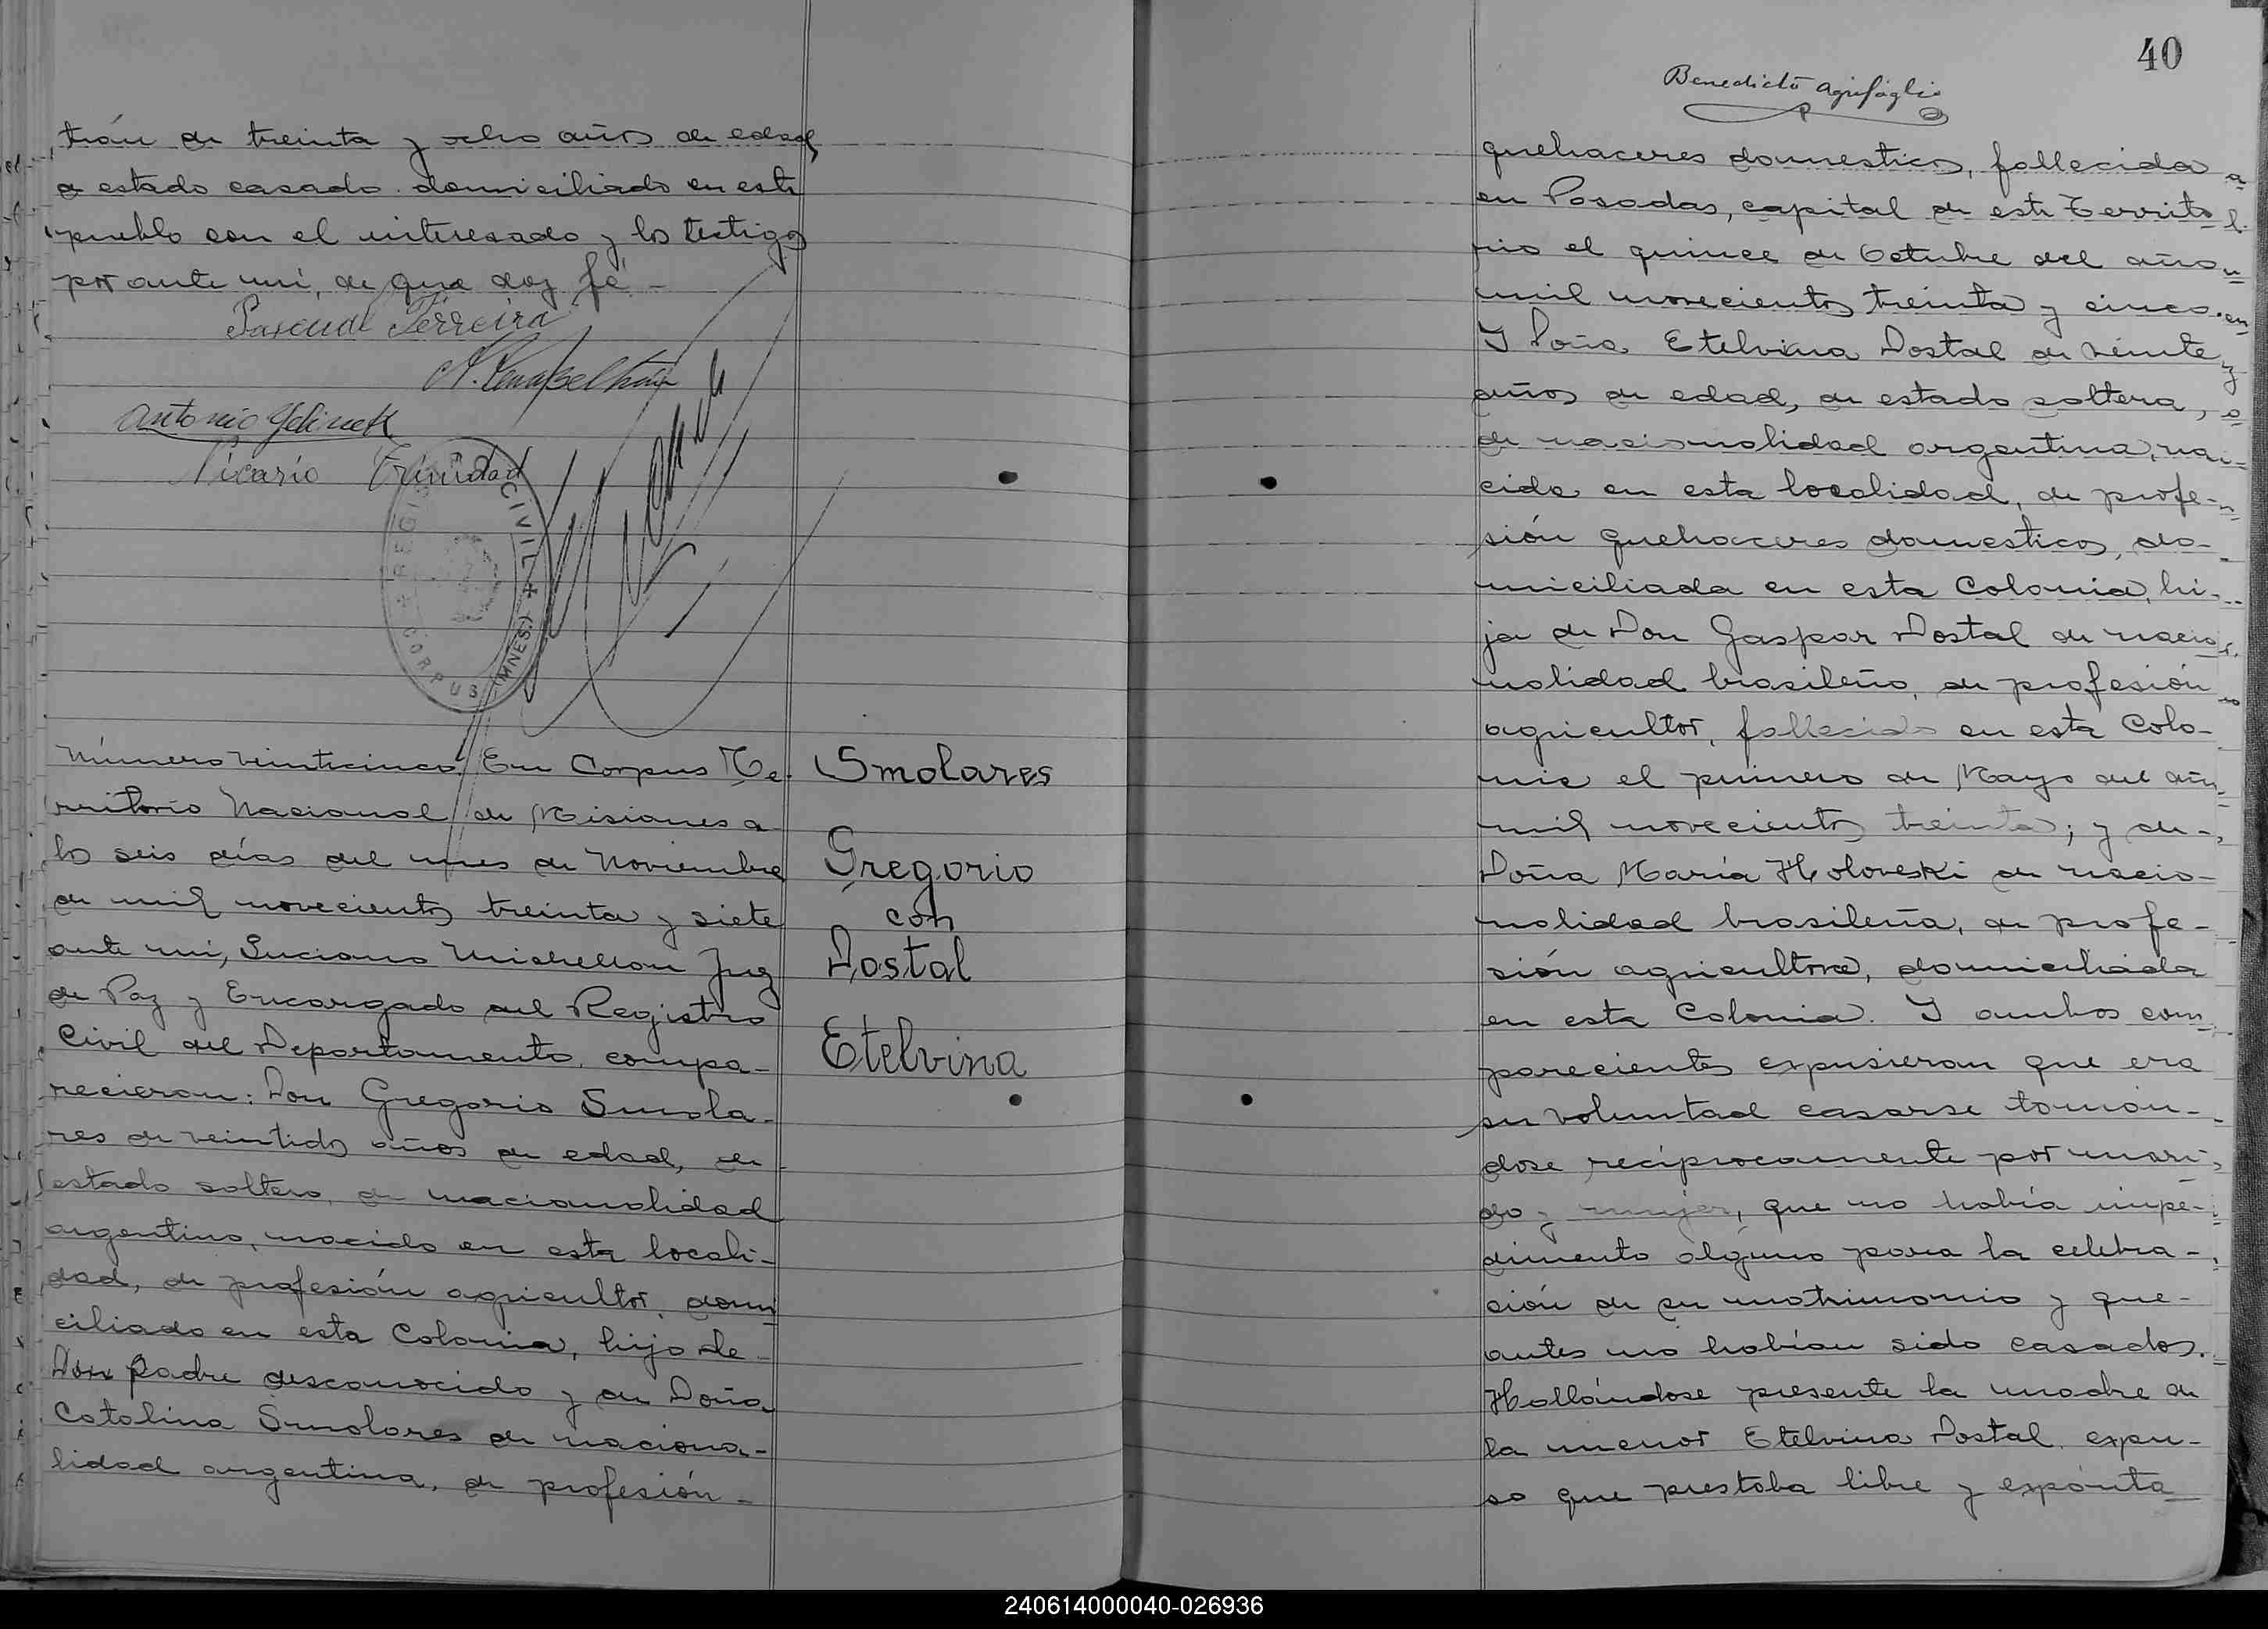 trán de treinta y ocho años de edad,
de estado casado domiciliado en este
pueblo con el interesado y los testigos
por ante mi, de que doy fé -
Pascual Ferreira
Antonio Jelinek
Picario Trinidad
REGISTRO CIVIL
CORPUS (MNES.)
Número veinticinco. En Corpus Te-
rritorio Nacional de Misiones a
los seis días del mes de Noviembre
de mil novecientos treinta y siete
ante mi, Luciano Michellon Juez
de Paz y Encargado del Registro
Civil del Departamento, compa-
recieron: Don Gregorio Smola-
res de veintidos años de edad, de
estado soltero, de nacionalidad
argentino, nacido en esta locali-
dad, de profesión agricultor, domi
ciliado en esta Colonia, hijo de
Don Padre desconocido y de Doña
Catalina Smolares de naciona-
lidad argentina, de profesión -
Smolares
Gregorio
con
Dostal
Etelvina
40
Benedicto Agrifoglio
quehaceres domesticos, fallecida
en Posadas, capital de este Territo
rio el quince de Octubre del año
mil novecientos treinta y cinco.
Y Doña Etelvina Dostal de veinte
años de edad, de estado soltera,
de nacionalidad argentina, na-
cida en esta localidad, de profe-
sión quehaceres domesticos, do-
miciliada en esta Colonia, hi-
ja de Don Gaspar Dostal de nacio
nalidad brasileño, de profesión
agricultor, fallecido en esta Colo-
nia el primero de Mayo del año
mil novecientos treinta; y de
Doña María Holoveski de nacio-
nalidad brasileña, de profe-
sión agricultora, domiciliada
en esta Colonia. Y ambos com
parecientes expusieron que era
su voluntad casarse tomán-
dose recíprocamente por mari-
do y mujer, que no había impe-
dimento alguno para la celebra-
ción de su matrimonio y que-
antes no habían sido casados.
Hallándose presente la madre de
la menor Etelvina Dostal, expu-
so que prestaba libre y espónta
240614000040-026936